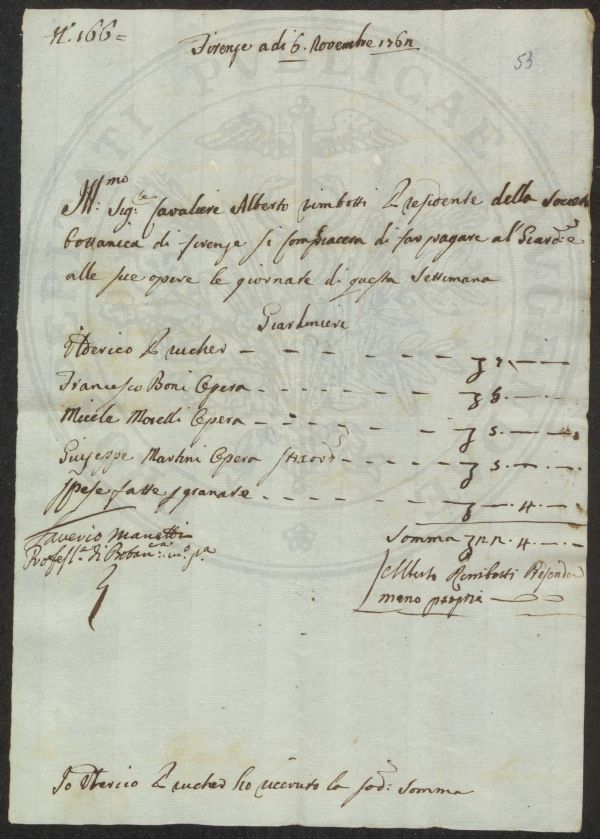 N.° 166 =
Firenze adi 6. Novembre 1762
53
Ill:mo Sig:re Cavaliere Alberto Rimbotti Presidente della Societa
bottanica di firenze si Compiacera di far pagare al Giard:e
alle sue opere le giornate di questa Settimana
Giardinieri
Uderico Prucher
Francesco Boni Opera
Micele Morelli Opera
Giuseppe Martini Opera straord:
Spese fatte granate 4
Saverio Manetti
Profess:e di Botan:ca m:o p:a
Somma 22. 4
Alberto Rimbotti Presiden
mano propria
Io Uderico Prucher ho ricevuto la sod: Somma
SERVATI PUBLICAE